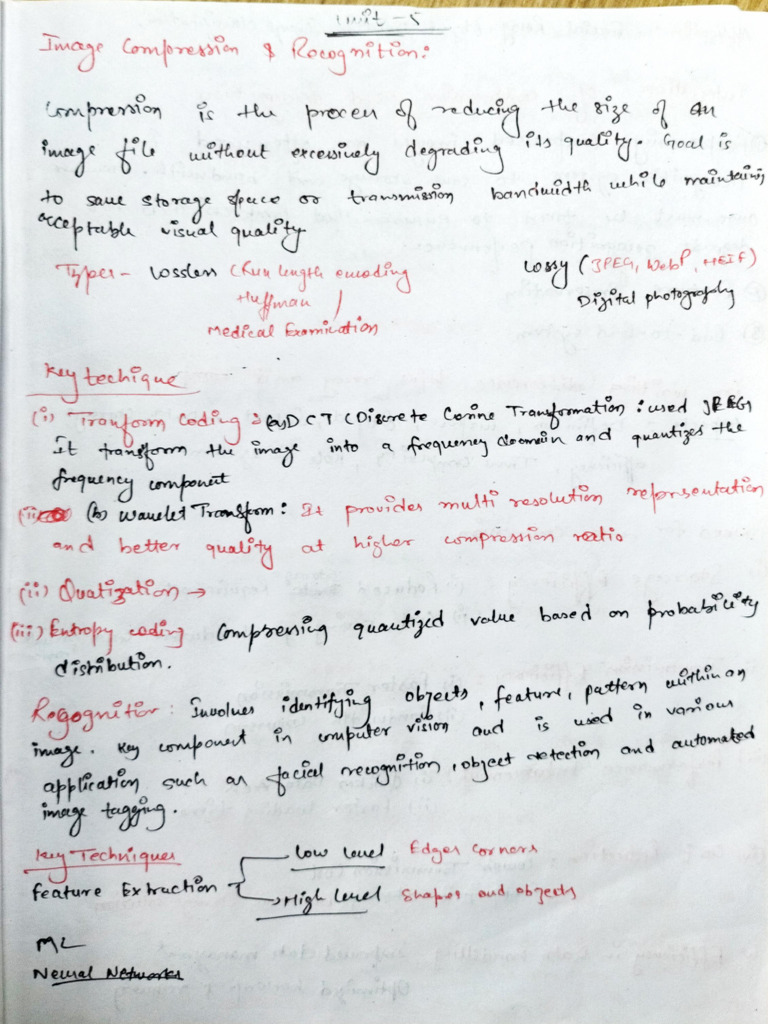 Unit - 5
Image Compression & Recognition:
Compression is the process of reducing the size of an
image file without excessively degrading its quality. Goal is
to save storage space or transmission bandwidth while maintaining
acceptable visual quality
Types - Lossless (Run length encoding Lossy (JPEG, WebP, HEIF)
Huffman) Digital photography
Medical Examination
Key techique
(i) Tranform Coding : (a) DCT (Discrete Cosine Transformation : used JPEG)
It transform the image into a frequency domain and quantizes the
frequency component
(b) Wavelet Transform: It provides multi resolution reprsentation
and better quality at higher compression ratio
(ii) Quatization →
(iii) Entropy coding Compressing quantized value based on probability
distribution.
Rogognitior: Involves identifying objects, feature, pattern within an
image. Key component in computer vision and is used in various
application such as facial recognition, object detection and automated
image tagging.
Key Techniques
Low Level Edges Corners
Feature Extraction
High Level Shapes and objects
ML
Neural Networks